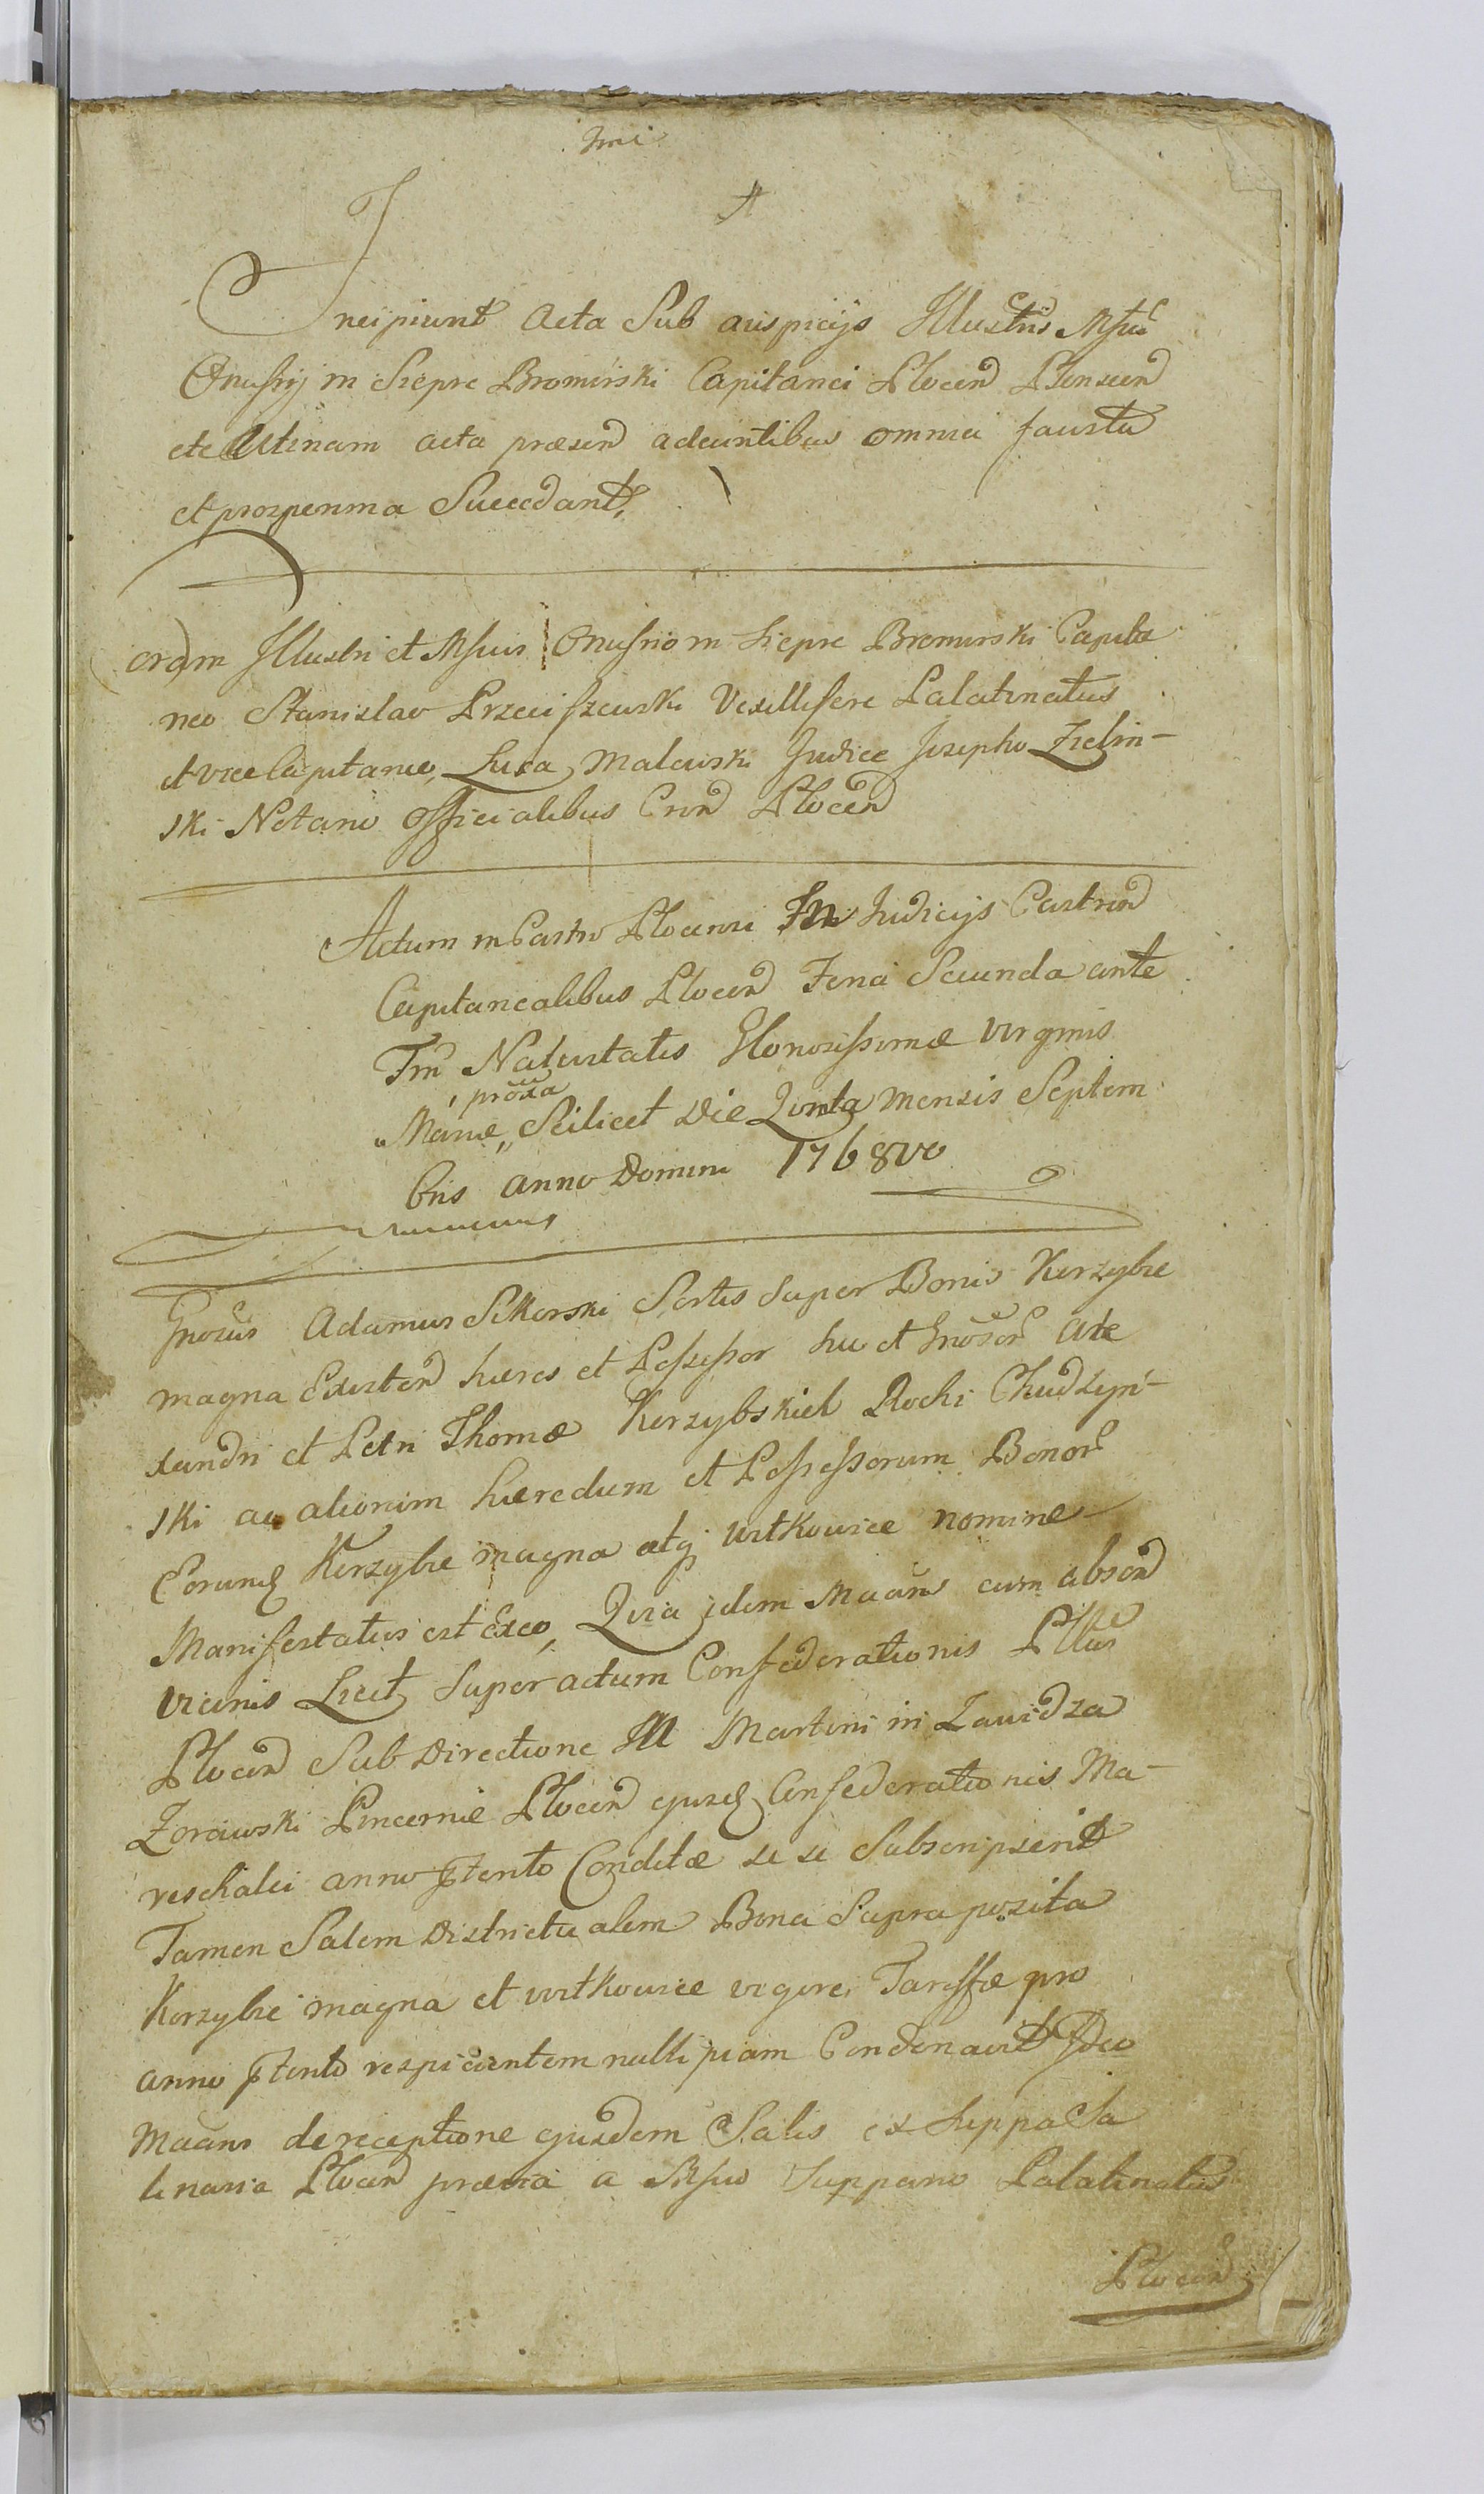 Incipiunt Acta Sub auspicijs Illustris Mfici
Onufrij in Siepre Bromirski Capitanei Plocen Plonscen
etc Utinam acta præsen adeuntibus omnia fausta
et prosperima Succedant,
Coram Illustri et Mfico Onufrio in Siepre Bromirski Capita
neo Stanislao Przeciszewski Vexillifero Palatinatus
et vice Capitaneo, Luca Malewski Judice Josepho Zielin-
ski Notario Officialibus Cron Plocen
Actum in Castro Plocensi In Judicijs Castren
Capitanealibus Plocen Feria Secunda ante
Fm Nativitatis Gloriosissimæ Virginis
proxa
Mariæ, Scilicet Die Qvinta Mensis Septem
bris anno Domini 1768vo
Gnosus Adamus Sikorski Sortis super Bonis Korzybie
magna Existen hæres et Possessor suo et Gnosor Ale
xandri et Petri Thomæ Korzybskich Rochi Chudzyn-
ski ac aliorum hæredum et Possessorum Bonor
Eorund Korzybie magna atq Witkowice nomine
Manifestatus est Exeo, Qvia idem Maans cum absen
vicinis Licet Super actum Confederationis Pttus
Plocen Sub Directione M Martini in Zawidza
Zorawski Pincernæ Plocen ejusd Confederationis Ma-
reschalci anno ptento Conditæ se se Subscripserit
Tamen Salem Districtualem Bona Supraposita
Korzybie magna et witkowice vigore Tariffæ pro
anno ptento respicientem nulli piam Condonavit Ideo
Maans de receptione ejusdem Salis ex Suppa Sa
linaria Plocen prævia a Mfico Suppario Palatinatus
Plocen